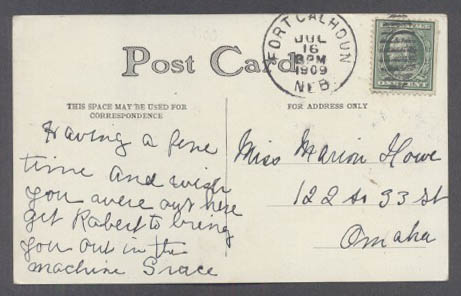 Post Card
FORT CALHOUN
JUL
16
3 PM
1909
NEB.
ONE CENT
THIS SPACE MAY BE USED FOR
CORRESPONDENCE
FOR ADDRESS ONLY
Having a fine
time and wish
you were out here
get Robert to bring
you out in the
machine Grace
Miss Marion Howe
122 So 33 St
Omaha